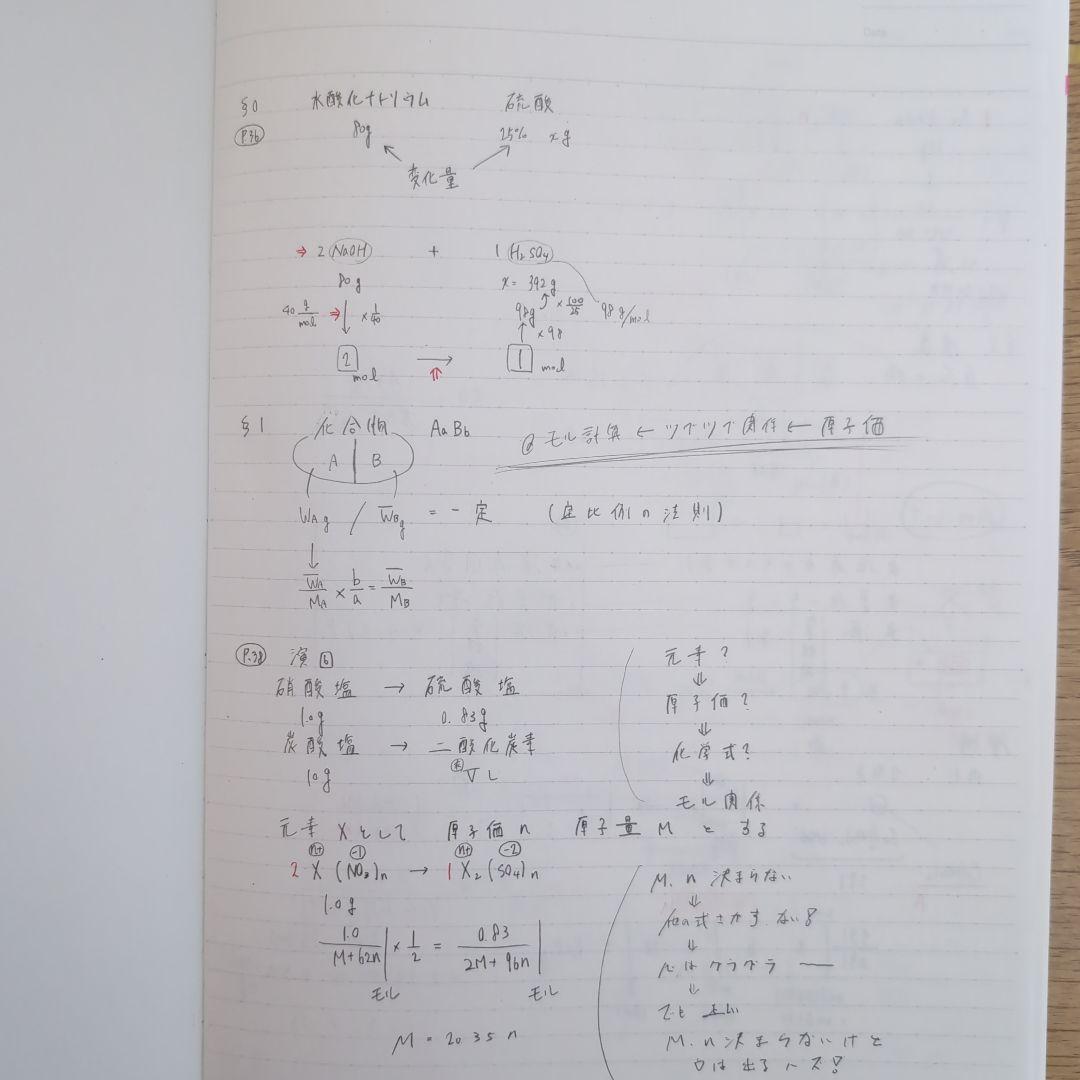 Date
§0 水酸化ナトリウム 硫酸
P.36 80g 25% xg
変化量
⇒ 2 NaOH + 1 H2SO4
80g x = 392g
40 g/mol ⇒ ↓ × 1/40 98g × 100/25 98 g/mol
↑ × 98
2 mol → 1 mol
⇑
§1 化合物 AaBb @ モル計算 ← ツブツブ関係 ← 原子価
A | B
WAg / WBg = 一定 (定比例の法則)
↓
WA/MA × b/a = WB/MB
P.38 演6
硝酸塩 → 硫酸塩
1.0g 0.83g
炭酸塩 → 二酸化炭素
10g VL
元素?
⇓
原子価?
⇓
化学式?
⇓
モル関係
元素 Xとして 原子価 n 原子量 M とする
n+ -1 n+ -2
2 X (NO3)n → 1 X2 (SO4)n
1.0g
1.0/(M+62n) × 1/2 = 0.83/(2M+96n)
モル モル
M = 20.35 n
M. n 決まらない
⇓
他の式さがす. ない
⇓
⇓
でも
M. n 決まらないけど
は出るハズ!